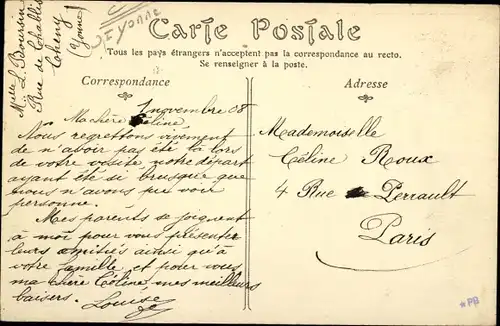 Mlle L. Boursin
Rue de Chablis
Cheny
(Yonne)
YONNE
Carte Postale
Tous les pays étrangers n'acceptent pas la correspondance au recto.
Se renseigner à la poste.
Correspondance
1 novembre 08
Ma chère Céline
Nous regrettons vivement
de n'avoir pas été là lors
de votre visite notre départ
ayant été si brusque que
nous n'avons pu voir
personne.
Mes parents se joignent
à moi pour vous présenter
leurs amitiés ainsi qu'à
votre famille et pour vous
ma chère Céline, mes meilleurs
baisers. Louise
Adresse
Mademoiselle
Céline Roux
4 Rue Perrault
Paris
*PB